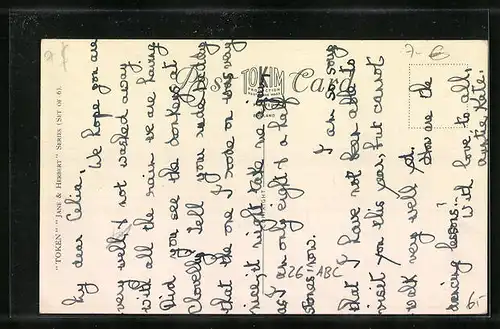 "TOKEN" "JANE & HERBERT" SERIES (SET OF 6).
Post Card
TOKIM
My dear Celia,
We hope you are
very well & not washed away
with all the rain we are having
Did you see the donkeys at
Clovelly. Tell your
that the one I rode on was very
nice, it might take me again
as I am only eight & a half
stones now.
I am so sorry
that I have not been able to
visit you this year, but cannot
walk very well yet.
How are the
dancing lessons?
With love to all,
Auntie Kate.
7-6
226 ABC
6,-